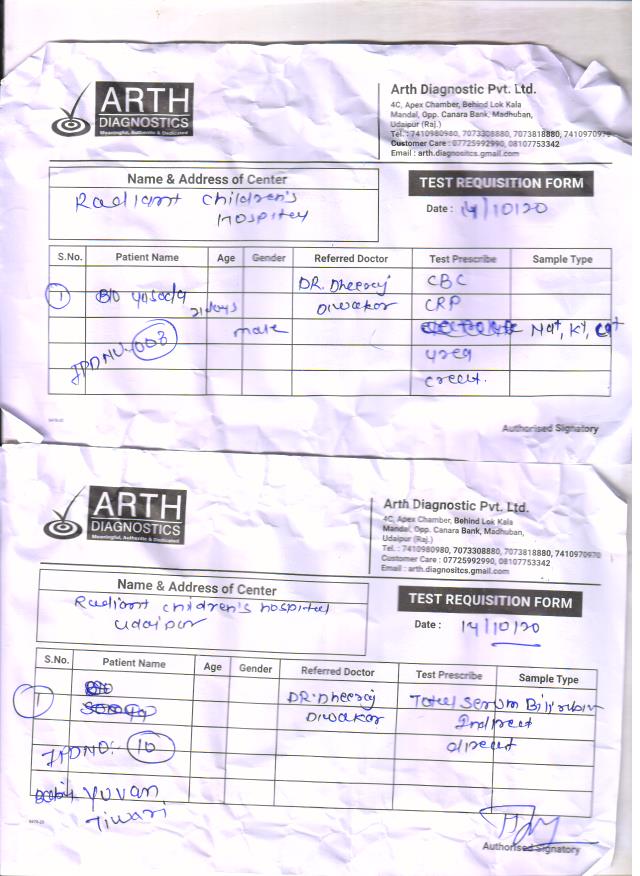 ARTH
DIAGNOSTICS
Meaningful, Authentic & Dedicated
Arth Diagnostic Pvt. Ltd.
4C, Apex Chamber, Behind Lok Kala
Mandal, Opp. Canara Bank, Madhuban,
Udaipur (Raj.)
Tel. : 7410980980, 7073308880, 7073818880, 7410970970
Customer Care : 07725992990, 08107753342
Email : arth.diagnositcs.gmail.com
Name & Address of Center
Radiant Children's
Hospital
TEST REQUISITION FORM
Date : 14/10/20
S.No. Patient Name Age Gender Referred Doctor Test Prescribe Sample Type
1 B/O 21days male DR. Dheeraj Diwakar
CBC
CRP
Na+, K+, Ca+
urea
creat.
IPD NO. 003
9479-20
Authorised Signatory
ARTH
DIAGNOSTICS
Meaningful, Authentic & Dedicated
Arth Diagnostic Pvt. Ltd.
4C, Apex Chamber, Behind Lok Kala
Mandal, Opp. Canara Bank, Madhuban,
Udaipur (Raj.)
Tel. : 7410980980, 7073308880, 7073818880, 7410970970
Customer Care : 07725992990, 08107753342
Email : arth.diagnositcs.gmail.com
Name & Address of Center
Radiant children's hospital
udaipur
TEST REQUISITION FORM
Date : 14/10/20
S.No. Patient Name Age Gender Referred Doctor Test Prescribe Sample Type
1 DR. Dheeraj Total serum Bilirubin
Diwakar Indirect
direct
IPD NO:- 10
Yuvan
Tiwari
9479-20
Authorised Signatory